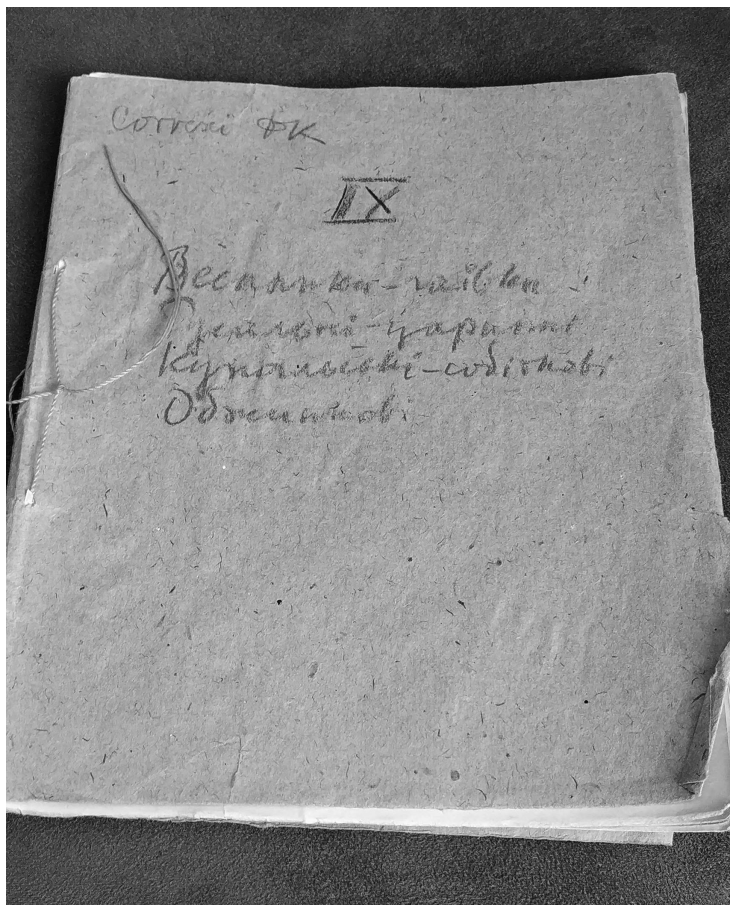 Correxi ФК
IX
Веснянки-гаївки
Трелорні-царинні
Купальські-собіткові
Обжинкові